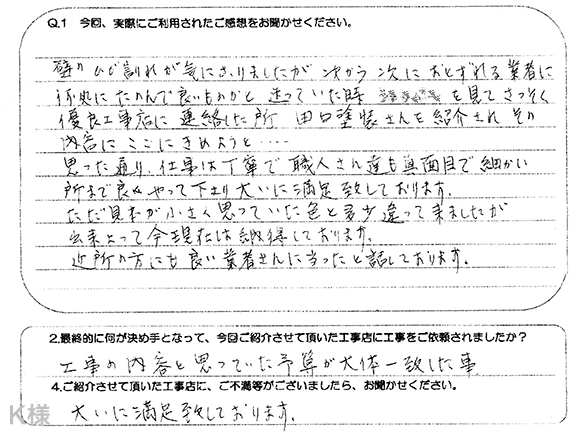 Q.1 今回、実際にご利用されたご感想をお聞かせください。
壁のひび割れが気になりましたが 次から次におとずれる業者に
何処にたのんで良いものかと 迷っていた時 を見てさっそく
優良工事店に連絡した所 田口塗装さんを紹介され その
内容にここにきめようと‥‥
思った通り、仕事は丁寧で職人さん達も真面目で細かい
所まで良くやって下さり大いに満足致しております。
ただ見本が小さく思っていた色と多少違って来ましたが
出来上って今現在は納得しております。
近所の方にも良い業者さんに当ったと話しております。
2.最終的に何が決め手となって、今回ご紹介させて頂いた工事店に工事をご依頼されましたか?
工事の内容と思っていた予算が大体一致した事
4.ご紹介させて頂いた工事店に、ご不満等がございましたら、お聞かせください。
大いに満足致しております。
K様